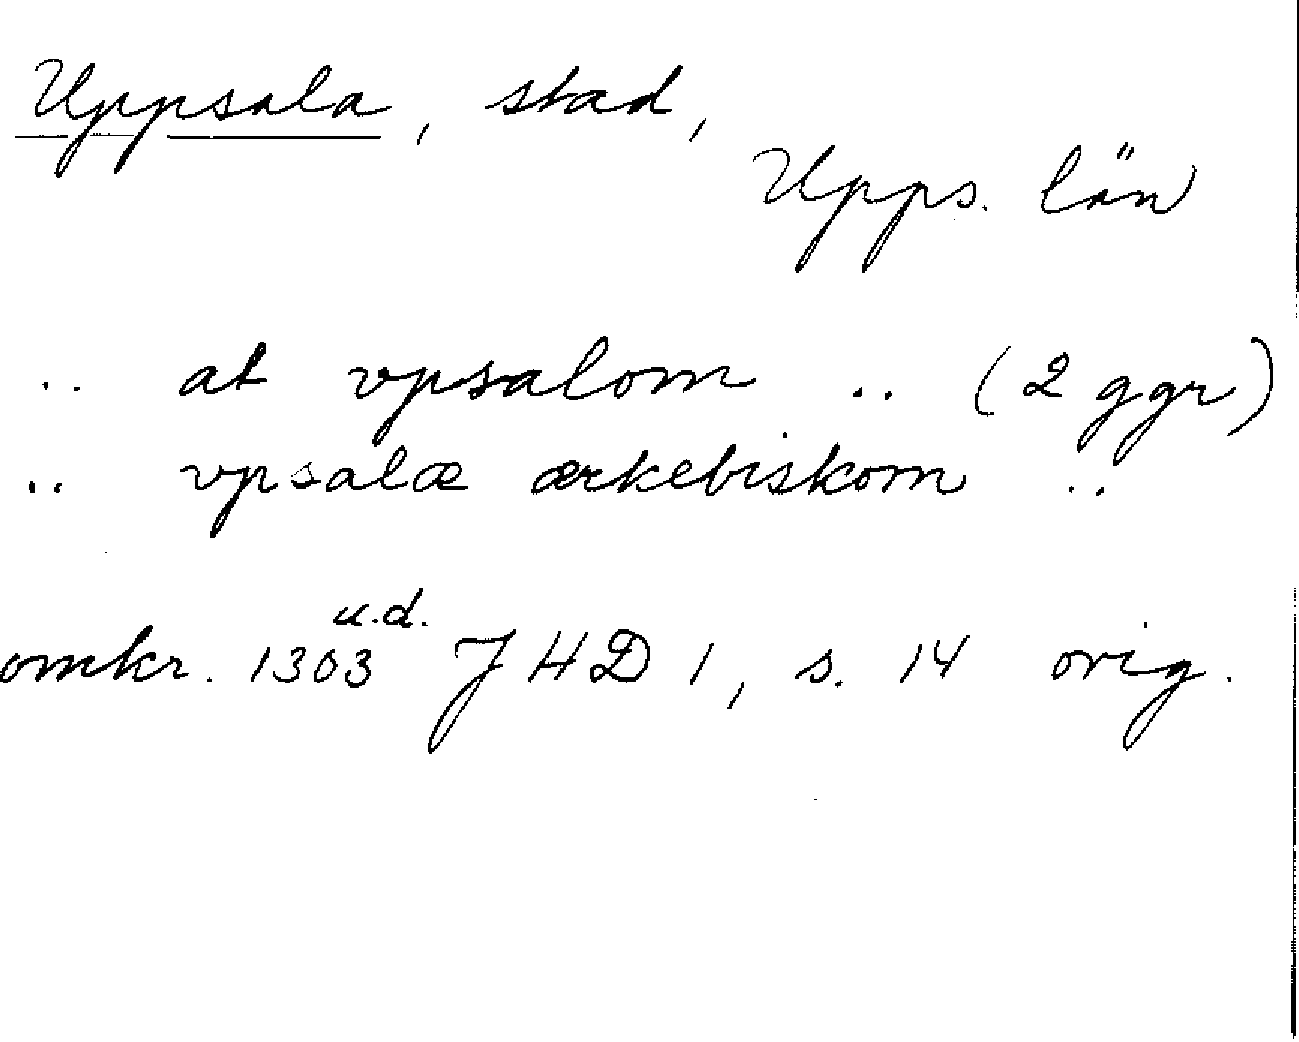 Uppsala, stad,
Upps. län
.. at vpsalom .. (2 ggr)
.. vpsalæ ærkebiskom ..
u.d.
omkr. 1303 JHD 1, s. 14 orig.